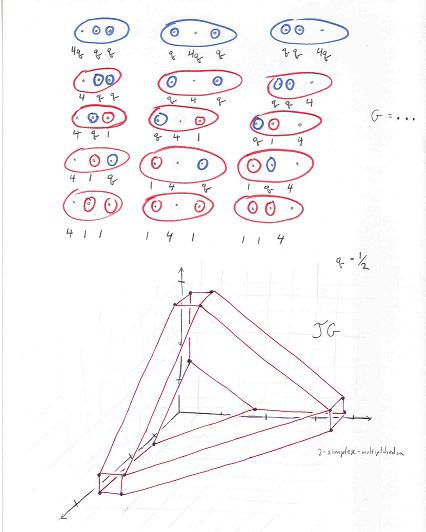 4q q q    q 4q q    q q 4q
4 q q    q 4 q    q q 4
4 q 1    q 4 1    q 1 4
G = ...
4 1 q    1 4 q    1 q 4
4 1 1    1 4 1    1 1 4
q = 1/2
JG
2-simplex-multiplihedron